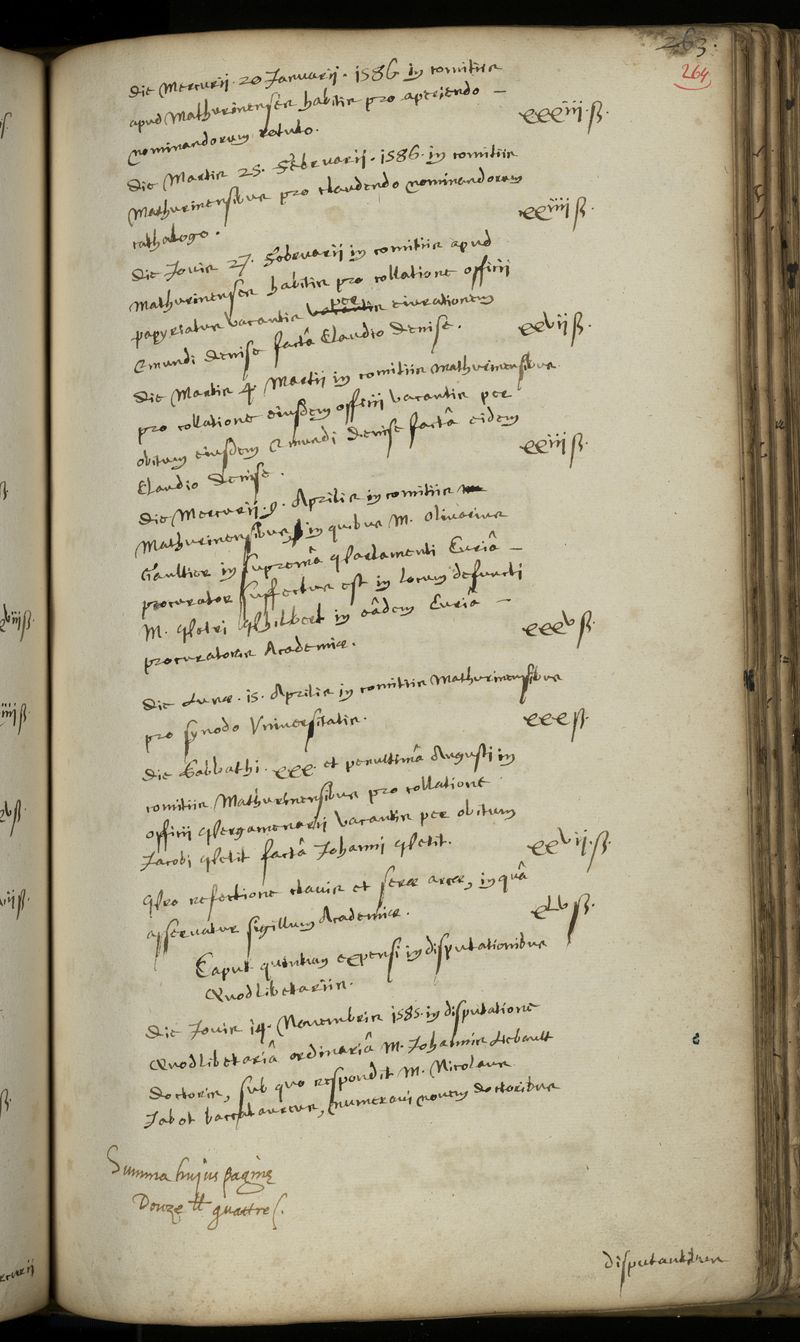 263.
264
Die Mercurii. 20 Januarii. 1586 in comitiis
apud Mathurinenses habitis pro aperiendo –
nominandorum rotulo.
xxxiii. ß.
Die Martis 25. Februarii. 1586. in comitiis
Mathurinensibus pro claudendo nominandorum
cathalogo.
xxiiii ß.
Die Jovis 27. Februarii in comitiis apud
Mathurinenses habitis pro collatione officii
papyriatus vacantis per eiurationem
Emundi Denise factâ Claudio Denise.
xxvii ß.
Die Martis 4 Martii in comitiis Mathurinensibus
pro collatione eiusdem officii vacantis per
obitum eiusdem Emundi Denise factâ eidem
Claudio Denise.
xxiii ß.
Die Mercurii. 9. Aprilis in comitiis
Mathurinensibus, in quibus M. Olivarius
Gaultier in supremâ Parlamenti Curiâ –
procurator suffectus est in locum defuncti
M. Petri Philbert in eâdem Curiâ –
procuratoris Academiæ.
xxxv ß.
Die Lunæ. 15. Aprilis in comitiis Mathurinensibus
pro synodo Universitatis.
xxx ß.
Die Sabbathi. xxx. et penultimâ Augusti in
comitiis Mathurinensibus pro collatione
officii Pergamenarii vacantis per obitum
Jacobi Petit factâ Johanni Petit.
xxvii. ß.
Pro refectione clavis et seræ arcæ, in quâ
asservatur sigillum Academiæ.
xlv ß.
Caput quintum expensi in disputationibus
Quodlibetariis.
Die Jovis 14. Novembris 1585. in disputatione
Quodlibetariâ ordinariâ M. Johannis Liebault
doctoris, sub quo respondit M. Nicolaus
Jabot baccalaureus, numeravi novem doctoribus
Summa hujus paginę
Douze ℔ quattre s.